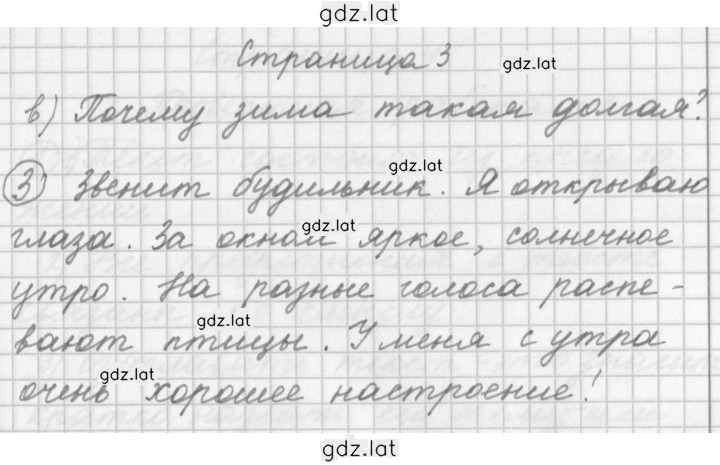 gdz.lat
Страница 3
gdz.lat
в) Почему зима такая долгая?
gdz.lat
3) Звенит будильник. Я открываю
gdz.lat
глаза. За окном яркое, солнечное
утро. На разные голоса распе-
gdz.lat
вают птицы. У меня с утра
gdz.lat
очень хорошее настроение!
gdz.lat